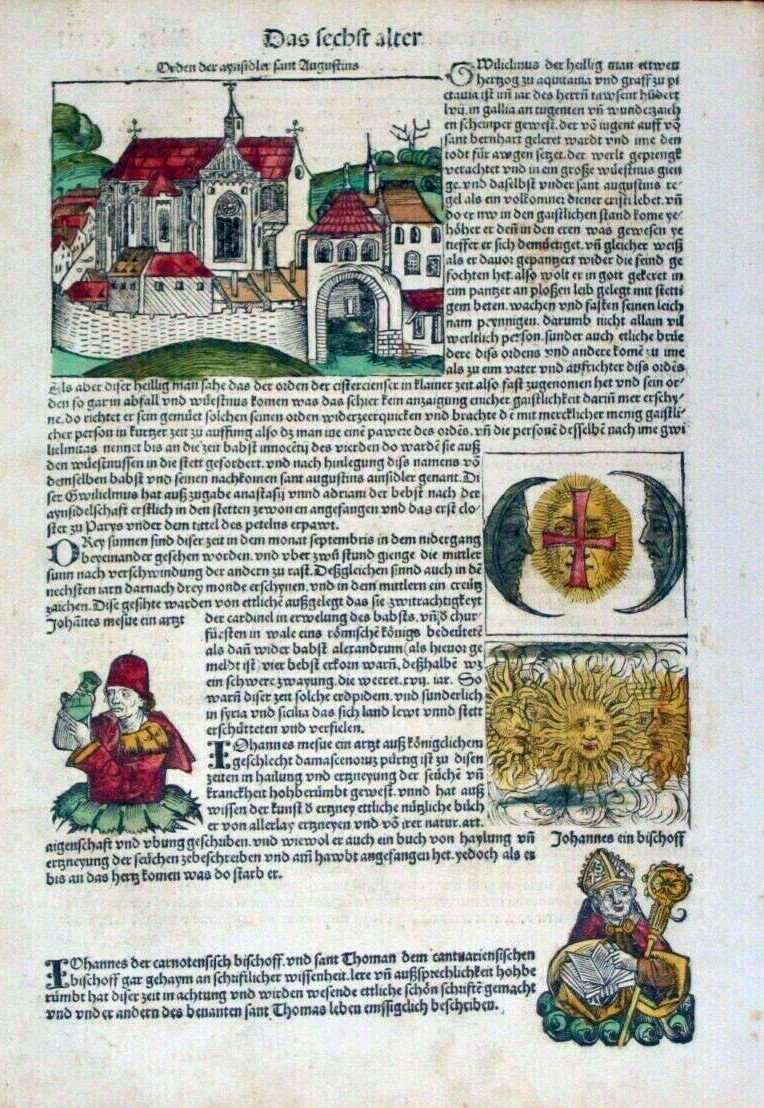 Das sechst alter
Orden der aynsidler sant Augustins
GWilielmus der heillig man ettwen
hertzog zu aquitania vnd graff zu pi
ctauia ist vñ iar des herrñ tawsent hũdert
lvij. in gallia an tugenten vñ wunderzaich
en scheinper gewest. der võ iugent auff võ
sant bernhart geleret wardt vnd ime den
todt für awgen setzet. der werlt geprengk
verachtet vnd in ein große wüestnus gien
ge. vnd daselbst vnder sant augustins re-
gel als ein volkomner diener cristi lebet. vñ
do er nw in den gaistlichen stand kome ye-
höher er deñ in den eren was gewesen ye
tieffer er sich demütiget. vñ gleicher weiß
als er dauor gepantzert wider die feind ge
fochten het. also wolt er in gott gekeret in
eim pantzer an ploßen leib gelegt mit stetti
gem beten. wachen vnd fasten seinen leich
nam peynnigen. darumb nicht allain vil
werltlich person. sunder auch etliche brüe
dere diss ordens vnd andere komẽ zu ime
als zu eim vater vnd auffrichter diss ordẽs
Als aber diser heillig man sahe das der orden der cistercienser in klainer zeit also fast zugenomen het vnd sein or-
den so gar in abfall vnd wüestnus komen was das schier kein anzaigung eincher gaistlichkeit dariñ mer erschy-
ne. do richtet er sein gemüet solchen seinen orden widerzeerquicken vnd brachte dẽ mit mercklicher menig gaistli-
cher person in kurtzer zeit zu auffung also dz man ine einẽ pawere des ordẽs. vñ die personẽ desselbẽ nach ime gwi
lielmitas nennet bis an die zeit babst innocẽtij des vierden do wardẽ sie auß
den wüestnussen in die stett gefordert. vnd nach hinlegung diss namens võ
demselben babst vnd seinen nachkomen sant augustins ainsidler genant. Di
ser Gwilielmus hat auß zugabe anastasij vnnd adriani der bebst nach der
aynsidelschaft erstlich in den stetten zewonen angefangen vnd das erst clo-
ster zu Parys vnder dem tittel des petelns erpawt.
DRey sunnen sind diser zeit in dem monat septembris in dem nidergang
beyeinander gesehen worden. vnd vber zwũ stund gienge die mittler
sunn nach verschwindung der andern zu rast. Deßgleichen sinnd auch in dẽ
nechsten iarn darnach drey monde erschynen. vnd in dem mittlern ein creütz
zaichen. Dise gesihte warden von ettlichẽ außgelegt das sie zwitrachtigkeyt
der cardinel in erwelung des babsts. vñ d̕ chur-
fürsten in wale eins römischẽ königs bedeütetẽ
als dañ wider babst alexandrum (als hieuor ge
meldt ist) vier bebst erkorn warñ. deßhalbẽ wz
ein schwere zwayung. die weeret. xvij. iar. So
warñ diser zeit solche erdpidem. vnd sunderlich
in syria vnd sicilia das sich land lewt vnnd stett
erschütteten vnd verfielen.
Johãnes mesue ein artzt
IOhannes mesue ein artzt auß königclichem
geschlecht damascenorũz pürtig ist zu disen
zeiten in hailung vnd ertzneyung der seüchẽ vñ
kranckheit hohberümbt gewest. vnnd hat auß
wissen der kunst d̕ ertzney ettliche nützliche büch
er von allerlay ertzneyen vnd võ irer natur. art.
aigenschaft vnd vbung geschriben. vnd wiewol er auch ein buch von haylung vñ
ertzneyung der seüchen zebeschreiben vnd am̃ hawbt angefangen het. yedoch als er
bis an das hertz komen was do starb er.
Johannes ein bischoff
IOhannes der carnotensisch bischoff. vnd sant Thoman dem cantuariensischen
bischoff gar gehaym an schriftlicher wissenheit. lere vñ außsprechlichkeit hohbe
rümbt hat diser zeit in achtung vnd wirden wesende ettliche schön schriftẽ gemacht
vnd vnder andern des benanten sant Thomas leben emssigclich beschriben.